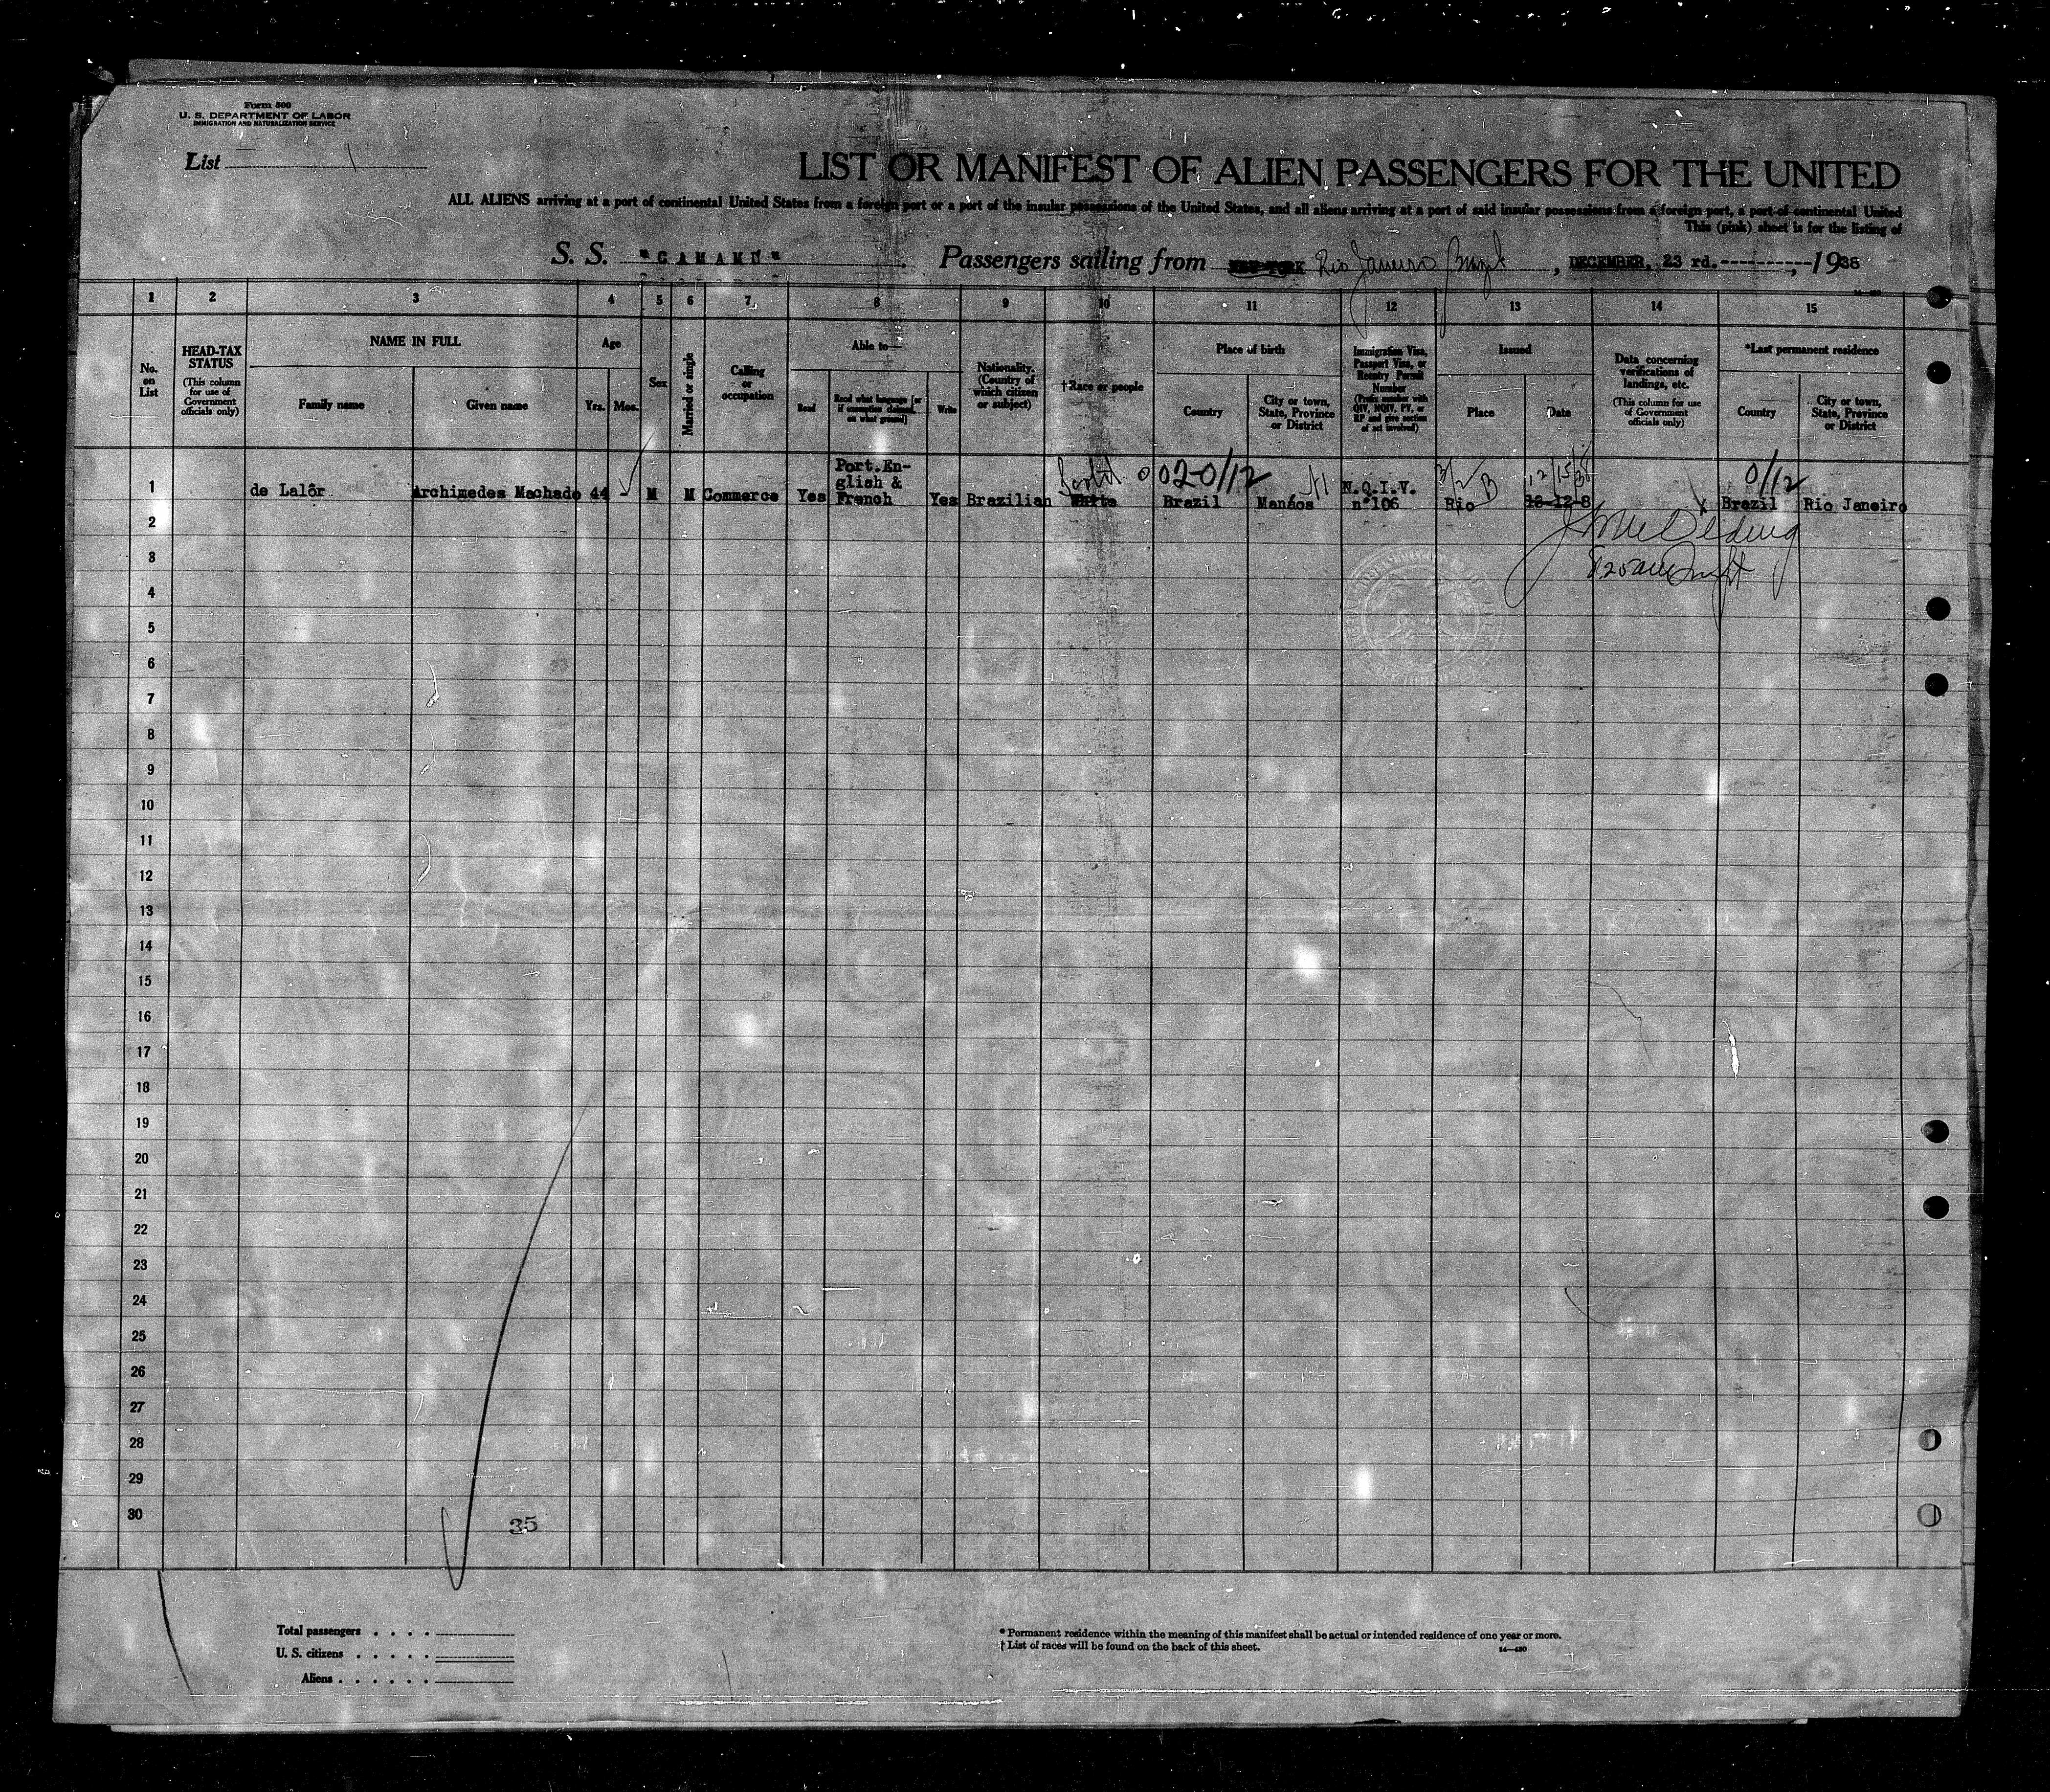 Form 500
U. S. DEPARTMENT OF LABOR
IMMIGRATION AND NATURALIZATION SERVICE
List 1
LIST OR MANIFEST OF ALIEN PASSENGERS FOR THE UNITED
ALL ALIENS arriving at a port of continental United States from a foreign port or a port of the insular possessions of the United States, and all aliens arriving at a port of said insular possessions from a foreign port, a port of continental United
This (pink) sheet is for the listing of
S. S. "CAMAMU" Passengers sailing from NEW YORK Rio Janeiro Brazil, DECEMBER, 23 rd. ----------, 1938
1 2 3 4 5 6 7 8 9 10 11 12 13 14 15
No. on List
HEAD-TAX STATUS
(This column for use of Government officials only)
NAME IN FULL
Family name
Given name
Age
Yrs.
Mos.
Sex
Married or single
Calling or occupation
Able to—
Read
Read what language [or if exemption claimed, on what ground]
Write
Nationality. (Country of which citizen or subject)
†Race or people
Place of birth
Country
City or town, State, Province or District
Immigration Visa, Passport Visa, or Reentry Permit Number
(Prefix number with QIV, NQIV, PV, or RP and give section of act involved)
Issued
Place
Date
Data concerning verifications of landings, etc.
(This column for use of Government officials only)
*Last permanent residence
Country
City or town, State, Province or District
1 de Lalôr Archimedes Machado 44 M M Commerce Yes Port.English & French Yes Brazilian White Brazil Manáos N.Q.I.V. n°106 Rio 12/15/38 Brazil Rio Janeiro
020/12
3/2 B
0/12
2
3
4
5
6
7
8
9
10
11
12
13
14
15
16
17
18
19
20
21
22
23
24
25
26
27
28
29
30
35
Total passengers . . . .
U. S. citizens . . . . .
Aliens . . . . . .
* Permanent residence within the meaning of this manifest shall be actual or intended residence of one year or more.
† List of races will be found on the back of this sheet.
14—480